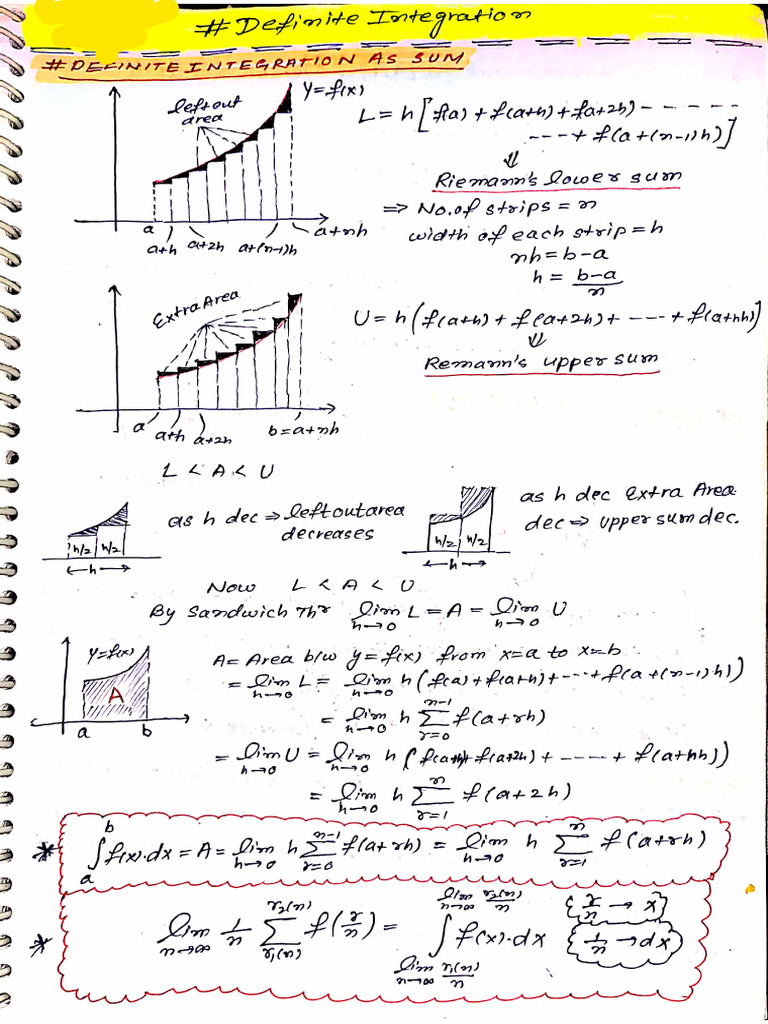 # Definite Integration
# DEFINITE INTEGRATION AS SUM
y=f(x)
left out
area
a
a+h
a+2h
a+(n-1)h
a+nh
L = h[f(a) + f(a+h) + f(a+2h) ------
---+ f(a+(n-1)h)]
⇓
Riemann's lower sum
⇒ No. of strips = n
width of each strip = h
nh = b-a
h = (b-a)/n
Extra Area
a
a+h
a+2h
b=a+nh
U = h(f(a+h) + f(a+2h) + ---- + f(a+nh)]
⇓
Remann's upper sum
L < A < U
h/2 h/2
←h→
as h dec ⇒ left out area
decreases
h/2 h/2
←h→
as h dec Extra Area
dec ⇒ upper sum dec.
Now L < A < U
By Sandwich Thr lim h→0 L = A = lim h→0 U
y=f(x)
A
a b
A = Area b/w y=f(x) from x=a to x=b
= lim h→0 L = lim h→0 h(f(a)+f(a+h)+---+f(a+(n-1)h))
= lim h→0 h ∑ r=0 n-1 f(a+rh)
= lim h→0 U = lim h→0 h(f(a+h)+f(a+2h)+----+f(a+nh))
= lim h→0 h ∑ r=1 n f(a+2h)
* ∫ a b f(x).dx = A = lim h→0 h ∑ r=0 n-1 f(a+rh) = lim h→0 h ∑ r=1 n f(a+rh)
* lim n→∞ 1/n ∑ r1(n) r2(n) f(r/n) = ∫ lim n→∞ r1(n)/n lim n→∞ r2(n)/n f(x).dx
{r/n → x}
{1/n → dx}